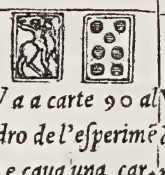 V a a carte 90 al
dro de l'eſperimẽ
e caua una car